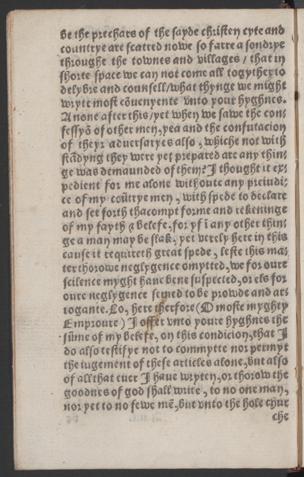 be the prechars of the sayde christen cyte and
countrye are scatred nowe so farre a sondrye
throughe the townes and villages / that in
shorte space we can not come all togyther to
delybre and counsell / what thynge we might
wryte most cōuenyente vnto your hyghnes.
A none after this / yet when we sawe the con-
fessyō of other men, yea and the confutacion
of theyr aduersaryes also, whiche not with
stādyng they were yet prepared are any thin-
ge was demaunded of them? I thought it ex-
pedient for me alone withoute any preiudi-
ce of my coūtrye men, with spede to declare
and set forth thacompt forme and rekeninge
of my fayth & belefe, for yf i any other thin-
ge a man may be slak, yet verely here in this
cause it requireth great spede, leste this mat
ter thorowe neglygence omytted, we for oure
scilence myght haue bene suspected, or els for
oure neglygence semed to be prowde and ar-
rogante. Lo, here therfore (O moste myghty
Emproure) I offer vnto youre hyghnes the
sūme of my belefe, on this condicion, that I
do also testifye not to commytte nor permyt
the iugement of these articles alone, but also
of all that euer I haue wryten, or thorow the
goodnes of god shall write, to no one man,
nor yet to no fewe mē, but vnto the hole chur
che